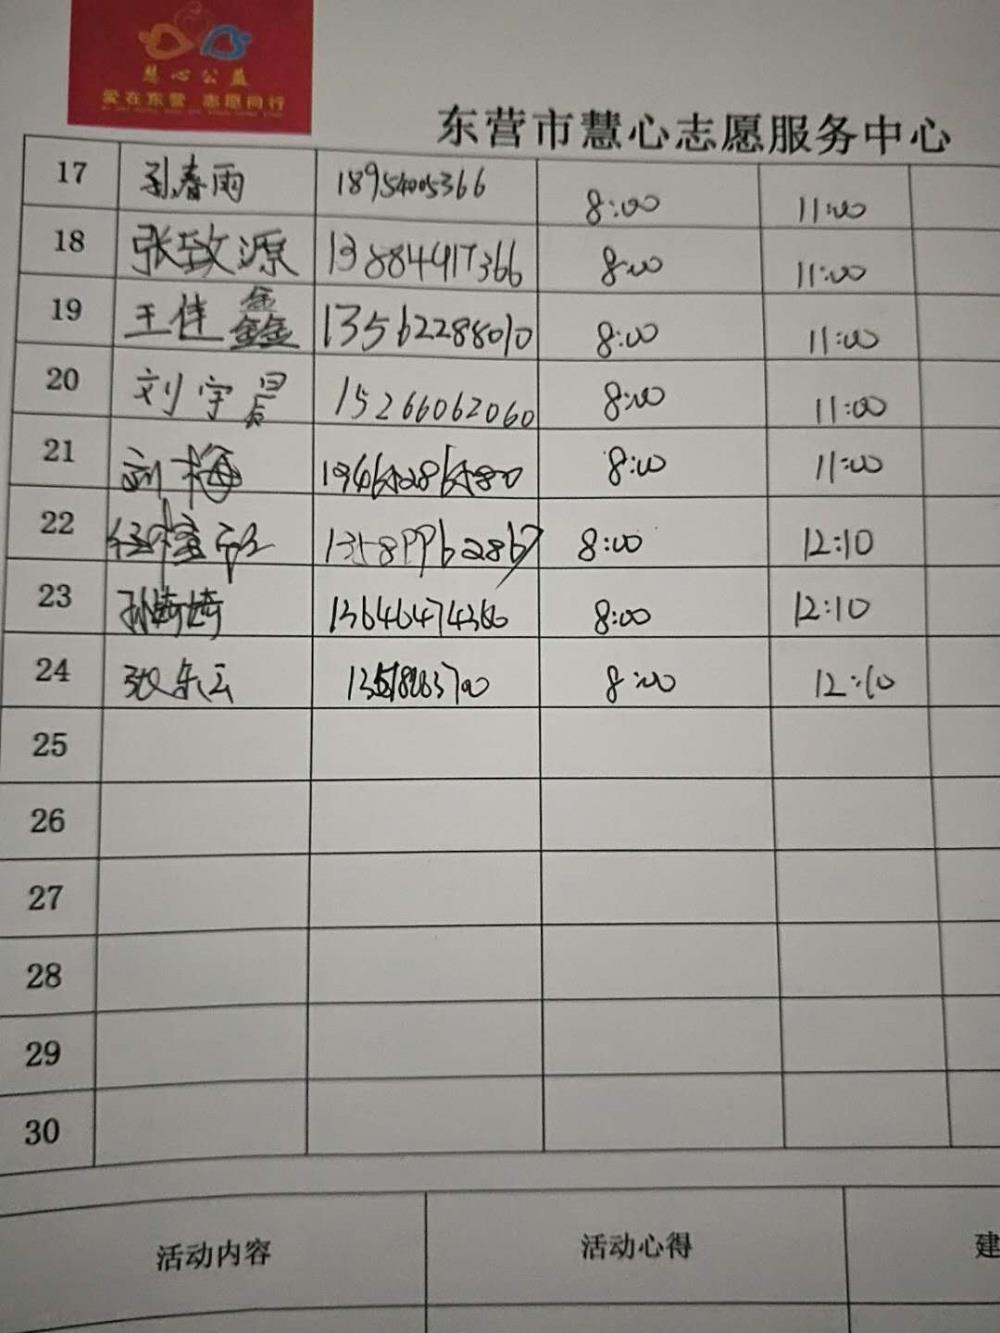 慧心公益
爱在东营 志愿同行
东营市慧心志愿服务中心
17 孙春雨 18954005366 8:00 11:00
18 张致源 13884417366 8:00 11:00
19 王佳鑫 13562288010 8:00 11:00
20 刘宇晨 15266062060 8:00 11:00
21 刘梅 8:00 11:00
22 8:00 12:10
23 孙婷婷 8:00 12:10
24 张乐云 8:00 12:10
25
26
27
28
29
30
活动内容 活动心得 建